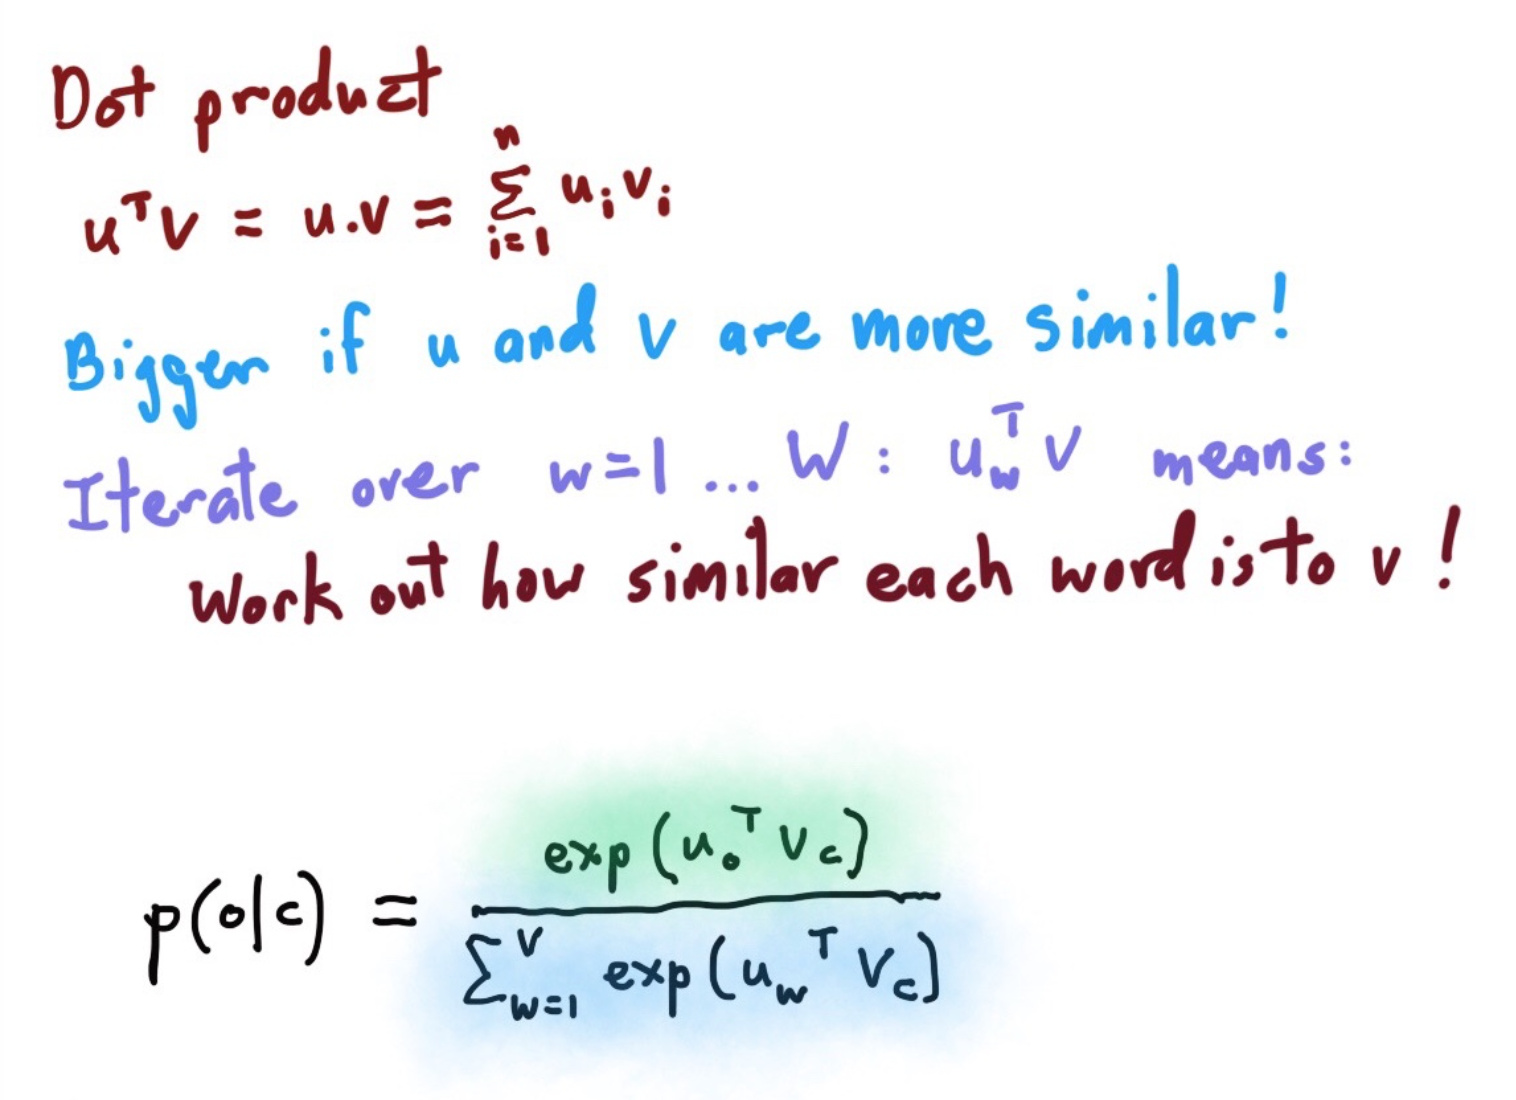 Dot product
uᵀv = u.v = Σⁿᵢ₌₁ uᵢvᵢ
Bigger if u and v are more similar!
Iterate over w=1 ... W : u_wᵀ v means:
Work out how similar each word is to v !
p(o|c) = exp(u_oᵀ v_c) / Σ_{w=1}^V exp(u_wᵀ v_c)